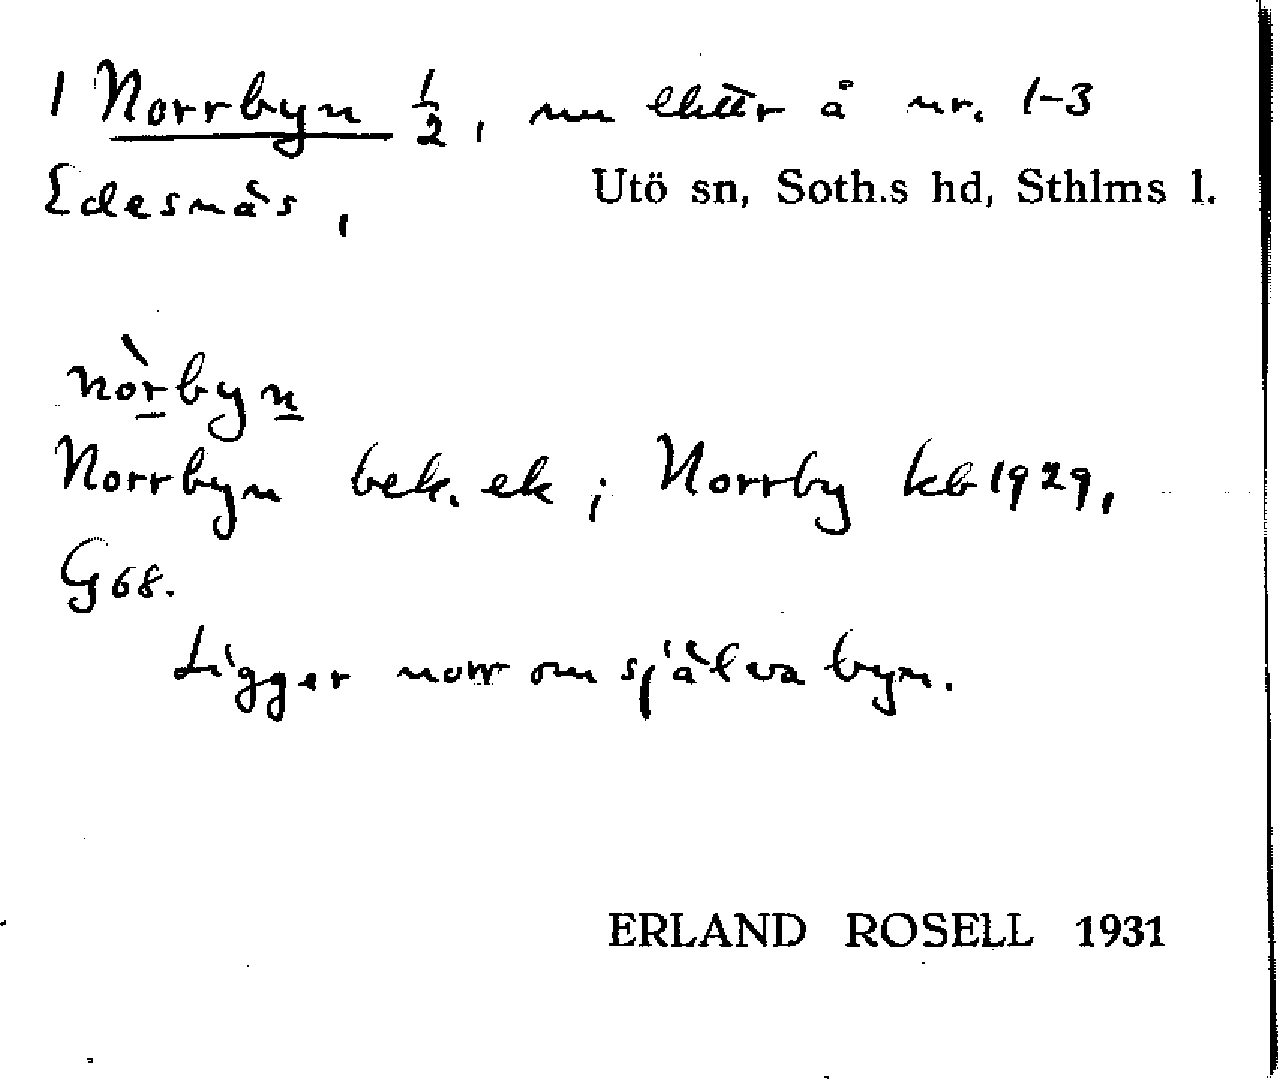 1 Norrbyn 1/2, nu ebitr å nr. 1-3
Edesnäs, Utö sn, Soth.s hd, Sthlms l.
nòrbyn
Norrbyn bek. ek; Norrby kb 1929,
G 68.
Ligger norr om själva byn.
ERLAND ROSELL 1931